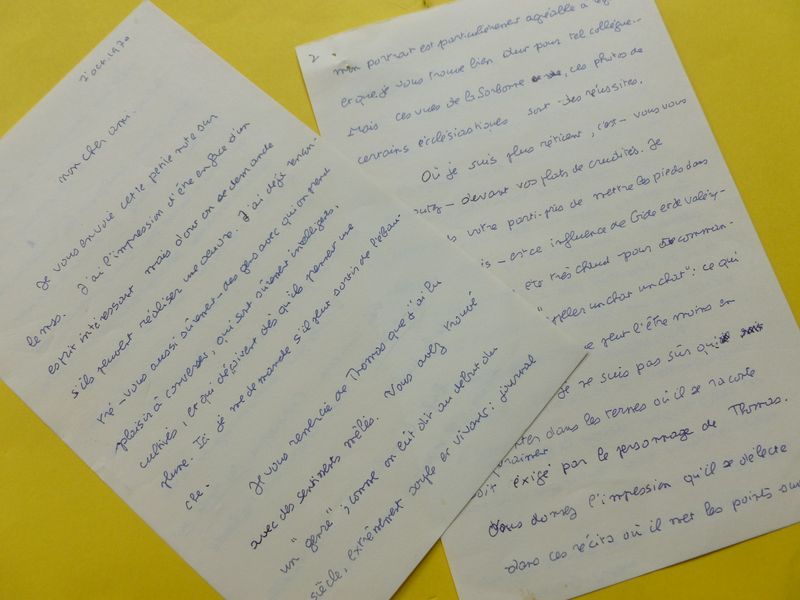 2 oct. 1970
mon cher ami.
Je vous envoie cette petite note sur
le ms. J'ai l'impression d'être en face d'un
esprit intéressant mais dont on se demande
s'il peut réaliser une œuvre. J'ai déjà rencon-
tré – vous aussi sûrement – des gens avec qui on prend
plaisir à converser, qui sont sûrement intelligents,
cultivés, et qui déçoivent dès qu'ils prennent une
plume. Ici je me demande s'il peut sortir de l'ébau-
che.
Je vous remercie de Thomas que j'ai lu
avec des sentiments mêlés. Vous avez trouvé
"un genre", comme on eût dit au début du
siècle, extrêmement souple et vivant : journal
2
mon portrait est particulièrement agréable à
et que je vous trouve bien dur pour tel collègue.
Mais ces vues de la Sorbonne, ces photos de
certains ecclésiastiques sont des réussites.
Où je suis plus réticent, c'est – vous vous
– devant vos plats de crudités. Je
votre parti-pris de mettre les pieds dans
– est-ce influence de Gide et de Valéry –
été très chaud pour comman-
"appeler un chat un chat" : ce qui
ne peut l'être moins en
je ne suis pas sûr qu'il
dans les termes où il se raconte
soit exigé par le personnage de Thomas.
Vous donnez l'impression qu'il se délecte
dans ces récits où il met les points sur